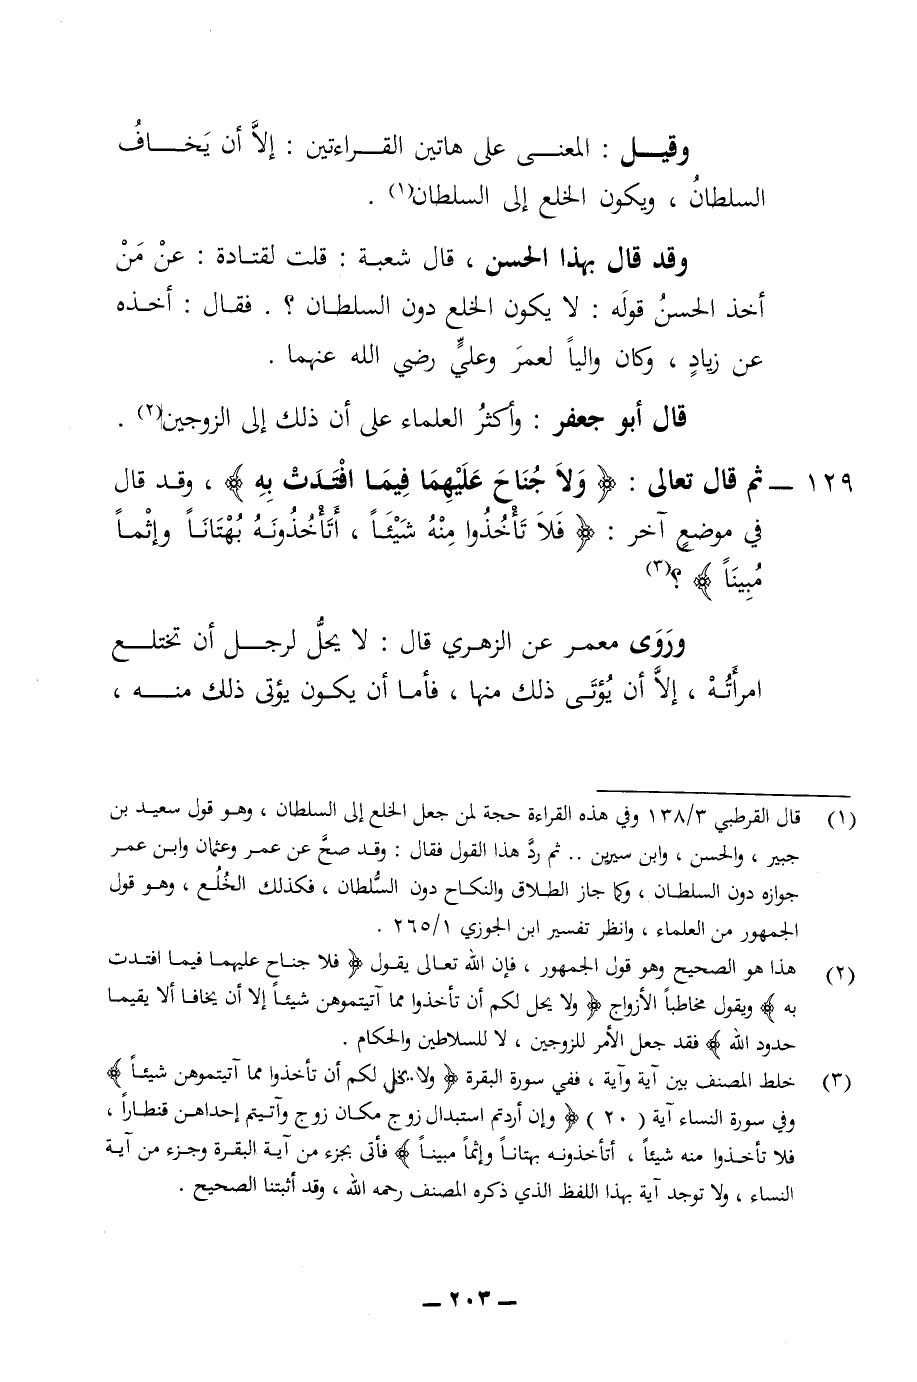 وقيـــل : المعنــى على هاتين القـــراءتين : إلاَّ أن يَخـــافُ
السلطانُ ، ويكون الخلع إلى السلطان(١) .
وقد قال بهذا الحسن ، قال شعبة : قلت لقتادة : عنْ مَنْ
أخذ الحسنُ قولَه : لا يكون الخلع دون السلطان ؟ . فقـال : أخـذه
عن زيادٍ ، وكان والياً لعمرَ وعليٍّ رضي الله عنهما .
قال أبو جعفر : وأكثرُ العلماء على أن ذلك إلى الزوجين(٢) .
١٢٩ ــ ثم قال تعالى : ﴿ وَلاَ جُنَاحَ عَلَيْهِمَا فِيمَـا افْتَدَتْ بِهِ ﴾ ، وقـد قال
في موضعٍ آخر : ﴿ فَلاَ تَأْخُذُوا مِنْهُ شَيْئَـاً ، أَتَأْخُذُونَـهُ بُهْتَانَـاً وإثْمـاً
مُبِينَاً ﴾ ؟(٣)
ورَوَى معمـر عن الزهـري قال : لا يحلُّ لرجـل أن تختلـع
امرأَتُهُ ، إلاَّ أن يُؤتَـى ذلك منها ، فأمـا أن يكـون يؤتى ذلك منـــه ،
(١) قال القرطبي ١٣٨/٣ وفي هذه القراءة حجة لمن جعل الخلع إلى السلطان ، وهـو قول سعيـد بن
جبير ، والحسن ، وابن سيرين .. ثم ردَّ هذا القول فقال : وقـد صحَّ عن عمـر وعثمان وابـن عمـر
جوازه دون السلطـان ، وكما جاز الطـلاق والنكـاح دون السُّلطان ، فكذلك الخُلـع ، وهـو قول
الجمهور من العلماء ، وانظر تفسير ابن الجوزي ٢٦٥/١ .
(٢) هذا هو الصحيح وهو قول الجمهور ، فإن الله تعالى يقول ﴿ فلا جنـاح عليهمـا فيمـا افتـدت
به ﴾ ويقول مخاطباً الأزواج ﴿ ولا يحل لكم أن تأخذوا مما آتيتموهن شيئـاً إلا أن يخافـا ألا يقيمـا
حدود الله ﴾ فقد جعل الأمر للزوجين ، لا للسلاطين والحكام .
(٣) خلط المصنف بين آية وآية ، ففي سورة البقرة ﴿ ولا يحل لكم أن تأخذوا مما آتيتموهن شيئـاً ﴾
وفي سورة النساء آية ( ٢٠ ) ﴿ وإن أردتم استبدال زوج مكان زوج وآتيـتم إحداهـن قنطـاراً ،
فلا تأخـذوا منه شيئاً ، أتأخذونـه بهتانـاً وإثمـاً مبينـاً ﴾ فأتى بجزء من آيـة البقرة وجـزء من آيـة
النساء ، ولا توجد آية بهذا اللفظ الذي ذكره المصنف رحمه الله ، وقد أثبتنا الصحيح .
ــ ٢٠٣ ــ